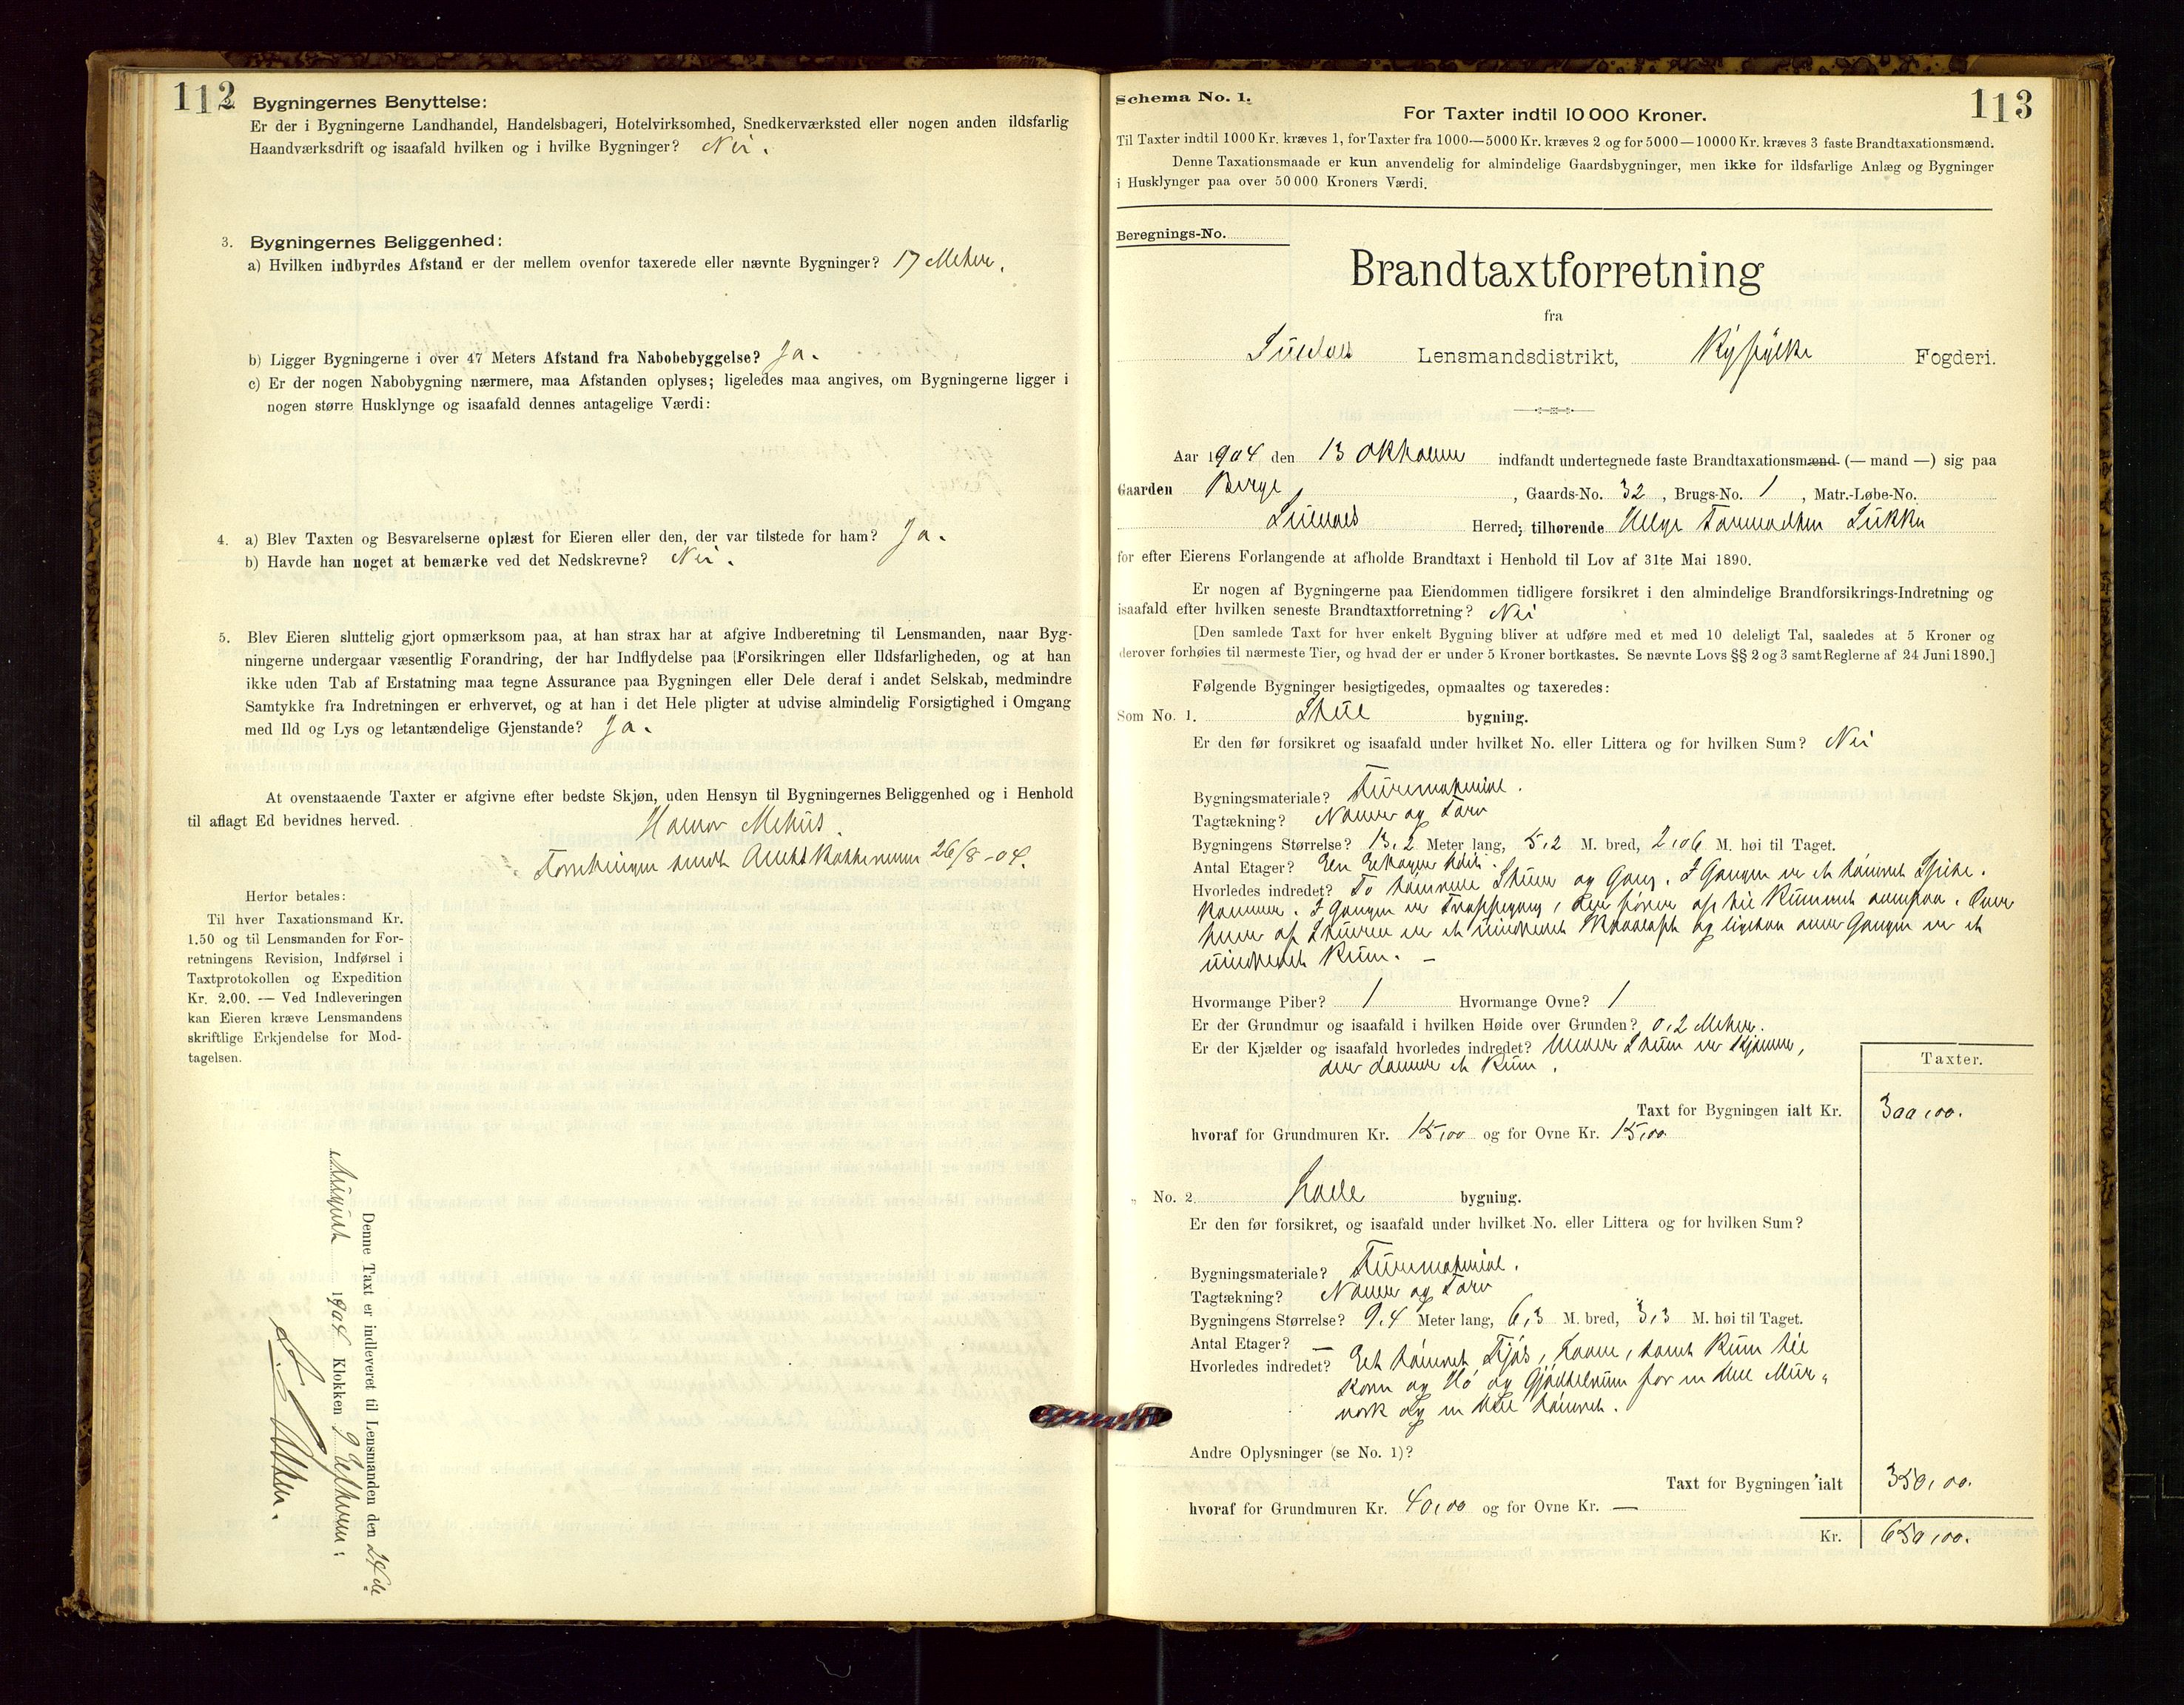 112
2. Bygningernes Benyttelse:
Er der i Bygningerne Landhandel, Handelsbageri, Hotelvirksomhed, Snedkerværksted eller nogen anden ildsfarlig
Haandværksdrift og isaafald hvilken og i hvilke Bygninger? Nei.
3. Bygningernes Beliggenhed:
a) Hvilken indbyrdes Afstand er der mellem ovenfor taxerede eller nævnte Bygninger? 17 Meter.
b) Ligger Bygningerne i over 47 Meters Afstand fra Nabobebyggelse? Ja.
c) Er der nogen Nabobygning nærmere, maa Afstanden oplyses; ligeledes maa angives, om Bygningerne ligger i
nogen større Husklynge og isaafald dennes antagelige Værdi:
4. a) Blev Taxten og Besvarelserne oplæst for Eieren eller den, der var tilstede for ham? Ja.
b) Havde han noget at bemærke ved det Nedskrevne? Nei.
5. Blev Eieren sluttelig gjort opmærksom paa, at han strax har at afgive Indberetning til Lensmanden, naar Byg-
ningerne undergaar væsentlig Forandring, der har Indflydelse paa (Forsikringen eller Ildsfarligheden, og at han
ikke uden Tab af Erstatning maa tegne Assurance paa Bygningen eller Dele deraf i andet Selskab, medmindre
Samtykke fra Indretningen er erhvervet, og at han i det Hele pligter at udvise almindelig Forsigtighed i Omgang
med Ild og Lys og letantændelige Gjenstande? Ja.
At ovenstaaende Taxter er afgivne efter bedste Skjøn, uden Hensyn til Bygningernes Beliggenhed og i Henhold
til aflagt Ed bevidnes herved.
Halvor Mehus.
Forretningen sendt 26/8-04.
Herfor betales:
Til hver Taxationsmand Kr.
1.50 og til Lensmanden for For-
retningens Revision, Indførsel i
Taxtprotokollen og Expedition
Kr. 2.00. — Ved Indleveringen
kan Eieren kræve Lensmandens
skriftlige Erkjendelse for Mod-
tagelsen.
Denne Taxt er indleveret til Lensmanden den 24de
August 1904 Klokken 9 Efterm.
113
Schema No. 1.
For Taxter indtil 10 000 Kroner.
Til Taxter indtil 1000 Kr. kræves 1, for Taxter fra 1000—5000 Kr. kræves 2 og for 5000—10000 Kr. kræves 3 faste Brandtaxationsmænd.
Denne Taxationsmaade er kun anvendelig for almindelige Gaardsbygninger, men ikke for ildsfarlige Anlæg og Bygninger
i Husklynger paa over 50 000 Kroners Værdi.
Beregnings-No.
Brandtaxtforretning
fra
Suldals Lensmandsdistrikt, Ryfylke Fogderi.
Aar 1904 den 13 Oktober indfandt undertegnede faste Brandtaxationsmænd (— mand —) sig paa
Gaarden Berge, Gaards-No. 32, Brugs-No. 1, Matr.-Løbe-No.
Suldals Herred, tilhørende Helge Tormodsen
for efter Eierens Forlangende at afholde Brandtaxt i Henhold til Lov af 31te Mai 1890.
Er nogen af Bygningerne paa Eiendommen tidligere forsikret i den almindelige Brandforsikrings-Indretning og
isaafald efter hvilken seneste Brandtaxtforretning? Nei
[Den samlede Taxt for hver enkelt Bygning bliver at udføre med et med 10 deleligt Tal, saaledes at 5 Kroner og
derover forhøies til nærmeste Tier, og hvad der er under 5 Kroner bortkastes. Se nævnte Lovs §§ 2 og 3 samt Reglerne af 24 Juni 1890.]
Følgende Bygninger besigtigedes, opmaaltes og taxeredes:
Som No. 1. Stue bygning.
Er den før forsikret og isaafald under hvilket No. eller Littera og for hvilken Sum? Nei
Bygningsmateriale? Furemateriel.
Tagtækning? Næver og Torv
Bygningens Størrelse? 13,2 Meter lang, 5,2 M. bred, 2,06 M. høi til Taget.
Antal Etager? En Etages høi.
Hvorledes indredet? To tømrede Stuer og Gang. I Gangen er et tømret Spise-
kammer. I Gangen er Trappegang, der fører op til Rummet ovenpaa. Over
hver af Stuerne er et uindredet Mørkeloft og ligesaa over Gangen er et
uindredet Rum. —
Hvormange Piber? 1 Hvormange Ovne? 1
Er der Grundmur og isaafald i hvilken Høide over Grunden? 0,2 Meter.
Er der Kjælder og isaafald hvorledes indredet? Under Stuen er Kjælder,
der danner et Rum.
Taxter.
Taxt for Bygningen ialt Kr. 300,00.
hvoraf for Grundmuren Kr. 15,00 og for Ovne Kr. 15,00
„ No. 2. Lade bygning.
Er den før forsikret, og isaafald under hvilket No. eller Littera og for hvilken Sum?
Bygningsmateriale? Furemateriel.
Tagtækning? Næver og Torv
Bygningens Størrelse? 9,4 Meter lang, 6,3 M. bred, 3,3 M. høi til Taget.
Antal Etager? —
Hvorledes indredet? Et tømret Fjøs, Laave, samt Rum til
Korn og Hø og Gjødselrum for en Del Mur-
verk og en Del tømret.
Andre Oplysninger (se No. 1)?
Taxt for Bygningen ialt 350,00.
hvoraf for Grundmuren Kr. 40,00 og for Ovne Kr. —
Kr. 650,00.